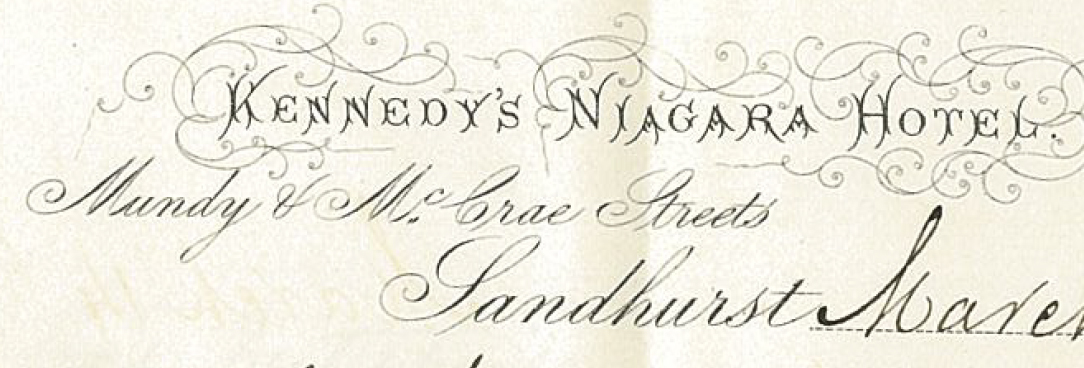 KENNEDY'S NIAGARA HOTEL.
Mundy & Mc. Crae Streets
Sandhurst March